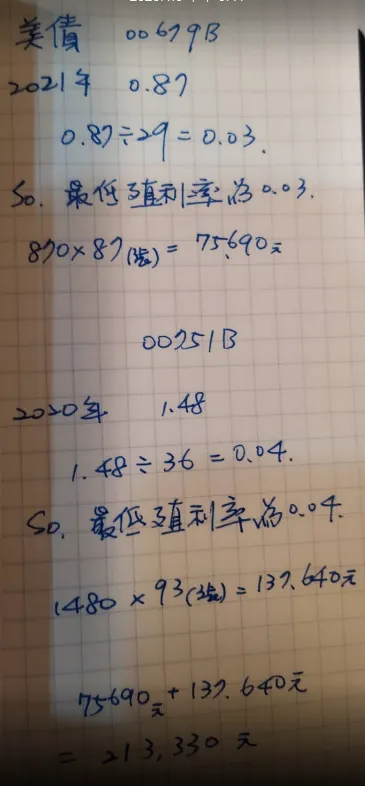 美債 00679B
2021年 0.87
0.87÷29=0.03.
So. 最低殖利率為0.03.
870×87(張)=75.690元
00751B
2020年 1.48
1.48÷36=0.04.
So. 最低殖利率為0.04.
1480×93(張)=137.640元
75690元+137.640元
=213,330元